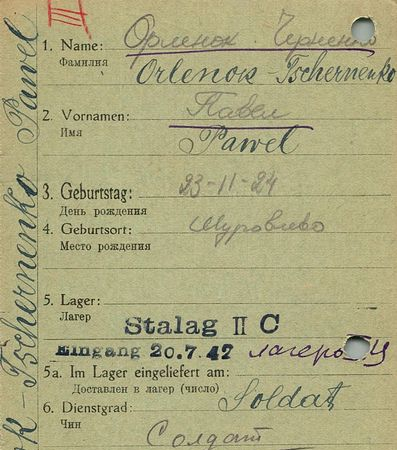 III
ok - Tschernenko Pawel
1. Name: Орленок Черненко
Фамилия
Orlenok - Tschernenko
2. Vornamen: Павел
Имя
Pawel
3. Geburtstag: 23-11-24
День рождения
4. Geburtsort:
Место рождения
5. Lager:
Лагерь
Stalag II C
Eingang 20.7.42
5a. Im Lager eingeliefert am:
Доставлен в лагерь (число)
6. Dienstgrad: Soldat
Чин
Солдат